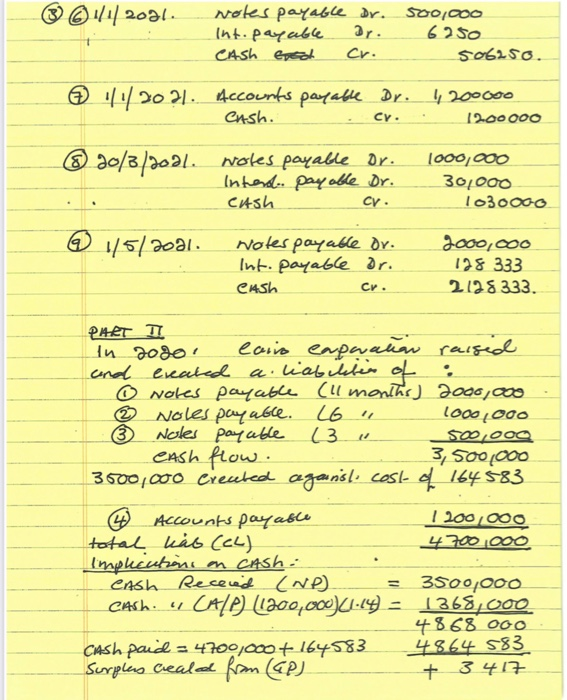 ③ ⑥ 1/1/2021. Notes payable Dr. 500,000
Int. payable Dr. 6250
Cash Cr. 506250.
⑦ 1/1/2021. Accounts payable Dr. 1,200000
Cash. Cr. 1200000
⑧ 20/3/2021. Notes payable Dr. 1000,000
payable Dr. 30,000
Cash Cr. 1030000
⑨ 1/5/2021. Notes payable Dr. 2000,000
Int. payable Dr. 128333
Cash Cr. 2128333.
PART II
In 2020: raised
and created a. liabilities of :
① Notes payable (11 months) 2000,000
② Notes payable. (6 " 1000,000
③ Notes payable (3 " 500,000
Cash flow. 3,500,000
3500,000 created against. cost of 164583
④ Accounts payable 1200,000
total liab (CL) 4700,000
Implications on cash:
Cash Received (NP) = 3500,000
Cash. " (A/P) (1200,000)(1.14) = 1368,000
4868 000
Cash paid = 4700,000 + 164583 4864 583
Surplus created from (GP) + 3417